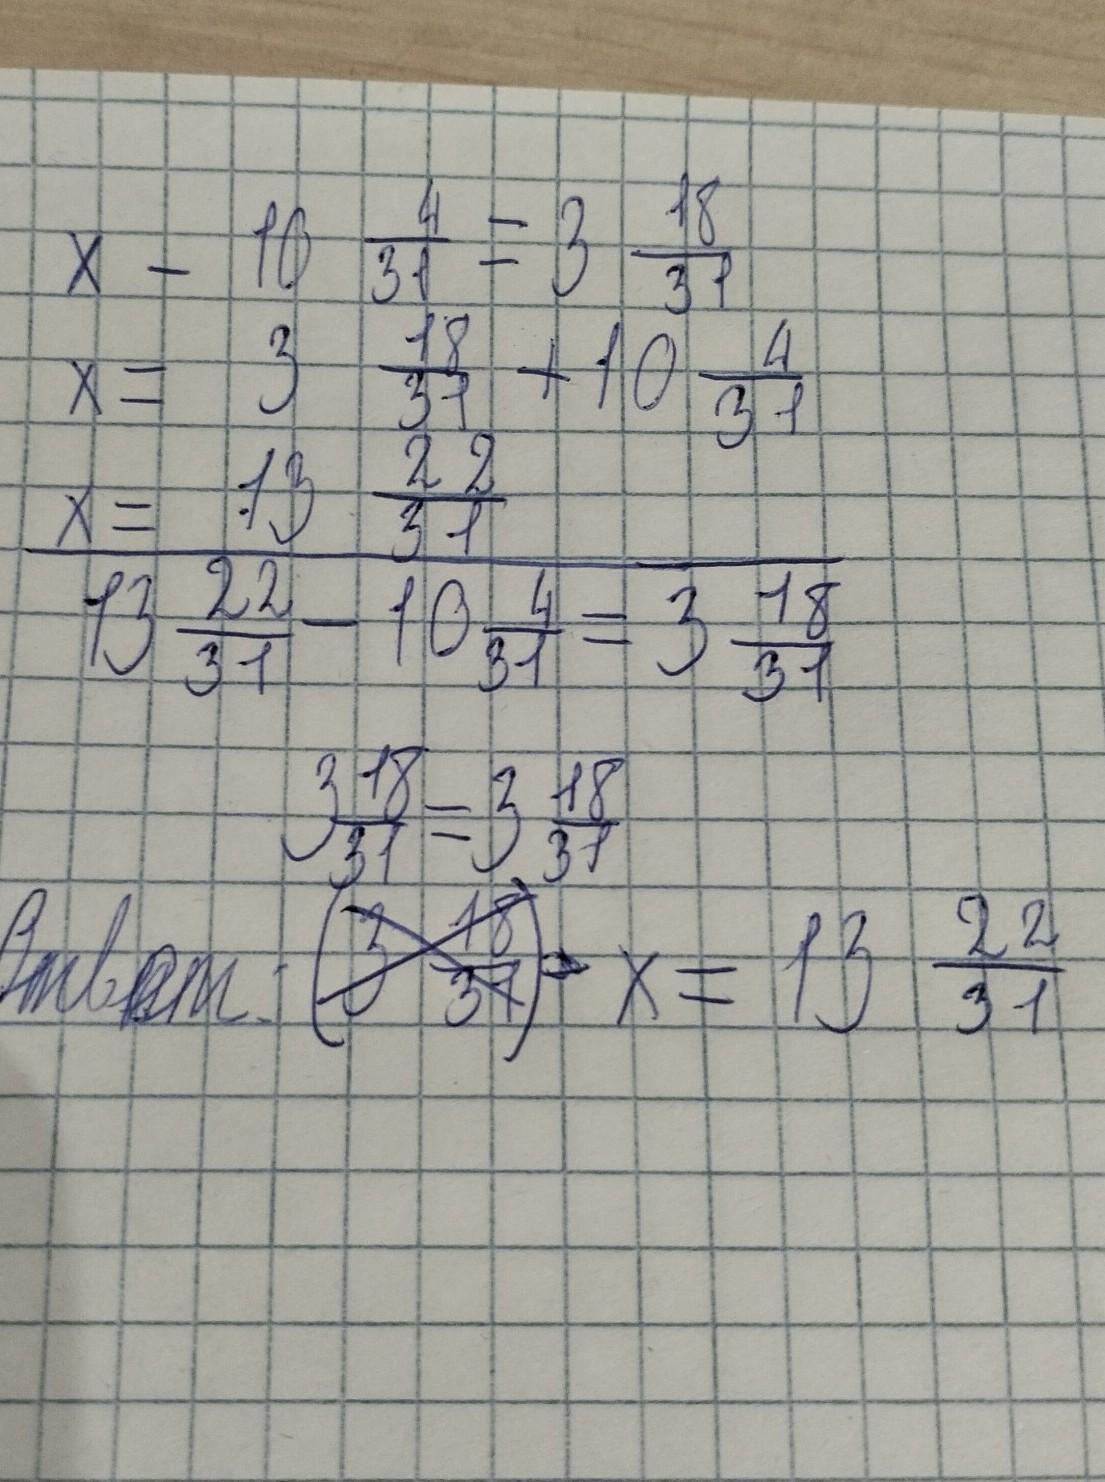 x - 10 4/31 = 3 18/31
x = 3 18/31 + 10 4/31
x = 13 22/31
13 22/31 - 10 4/31 = 3 18/31
3 18/31 = 3 18/31
Ответ: (3 18/31) x = 13 22/31